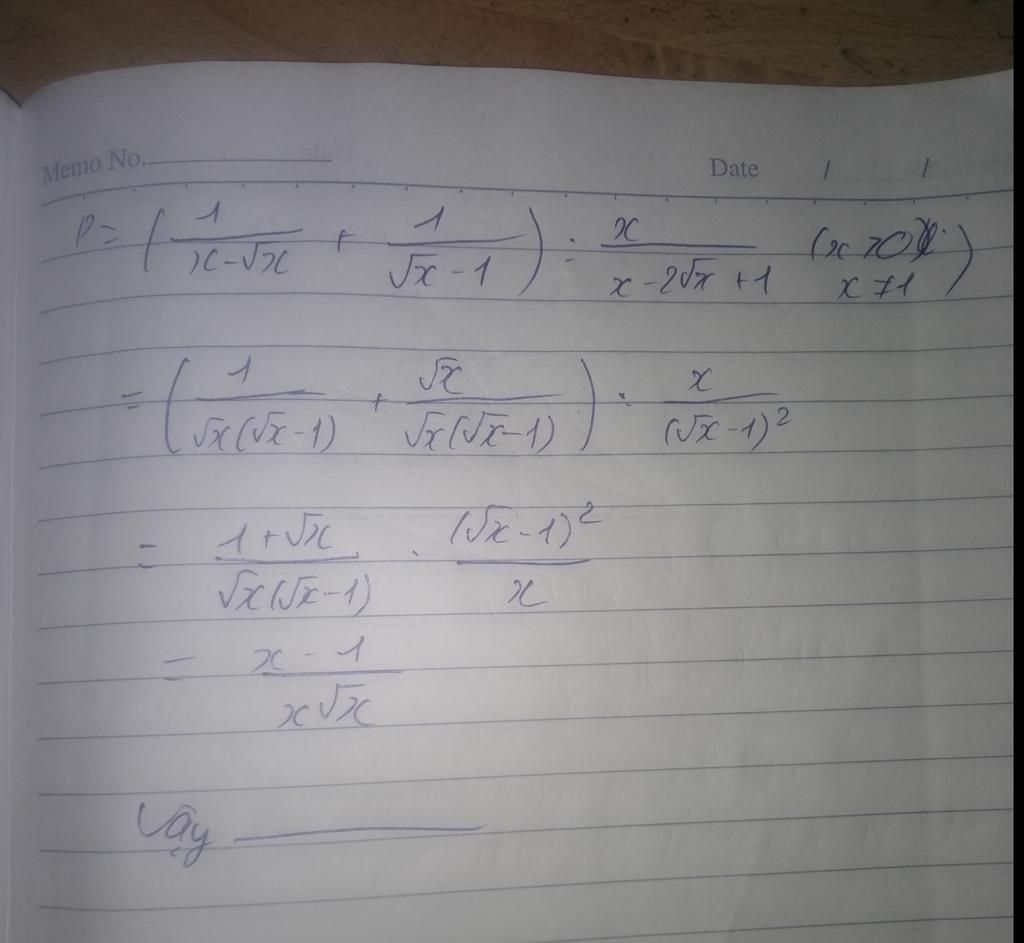 Memo No. Date / /
P = ( 1/(x-√x) + 1/(√x-1) ) : x/(x-2√x+1) (x>0, x≠1)
= ( 1/(√x(√x-1)) + √x/(√x(√x-1)) ) : x/(√x-1)²
= (1+√x)/(√x(√x-1)) . (√x-1)²/x
= (x-1)/(x√x)
Vậy